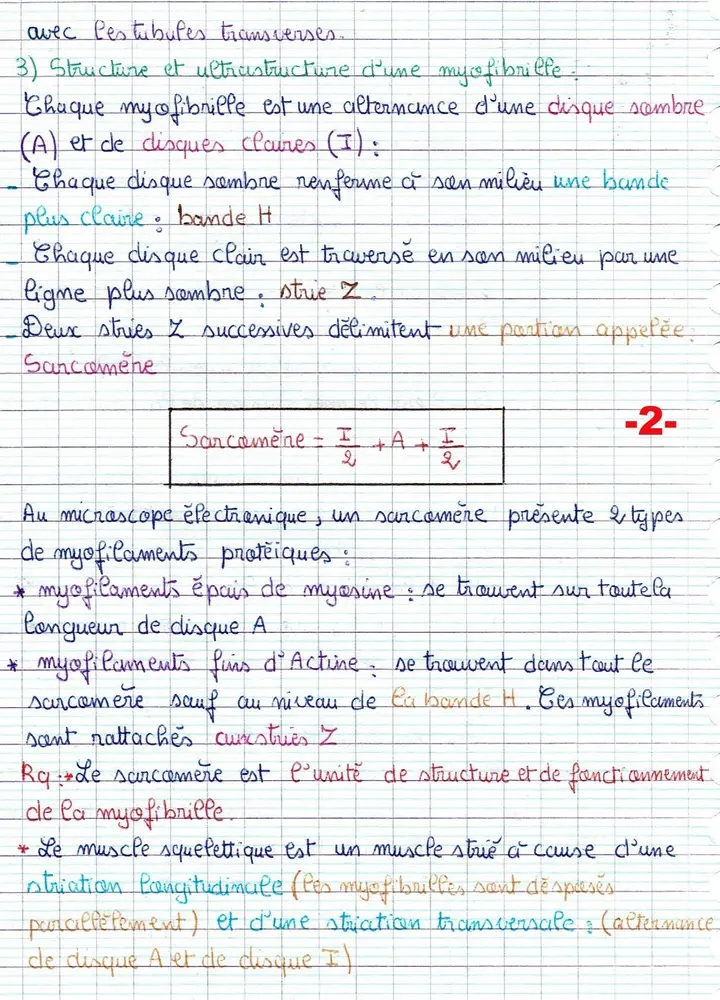 avec les tubules transverses.
3) Structure et ultrastructure d'une myofibrille :
Chaque myofibrille est une alternance d'une disque sombre
(A) et de disques claires (I) :
- Chaque disque sombre renferme à son milieu une bande
plus claire : bande H
- Chaque disque clair est traversé en son milieu par une
ligne plus sombre : strie Z.
- Deux stries Z successives délimitent une portion appelée :
Sarcomère
Sarcomère = I/2 + A + I/2
-2-
Au microscope électronique, un sarcomère présente 2 types
de myofilaments protéiques :
* myofilaments épais de myosine : se trouvent sur toute la
longueur de disque A
* myofilaments fins d'Actine : se trouvent dans tout le
sarcomère sauf au niveau de la bande H. Ces myofilaments
sont rattachés aux stries Z
Rq : * Le sarcomère est l'unité de structure et de fonctionnement
de la myofibrille.
* Le muscle squelettique est un muscle strié à cause d'une
striation longitudinale (les myofibrilles sont disposés
parallèlement) et d'une striation transversale : (alternance
de disque A et de disque I)